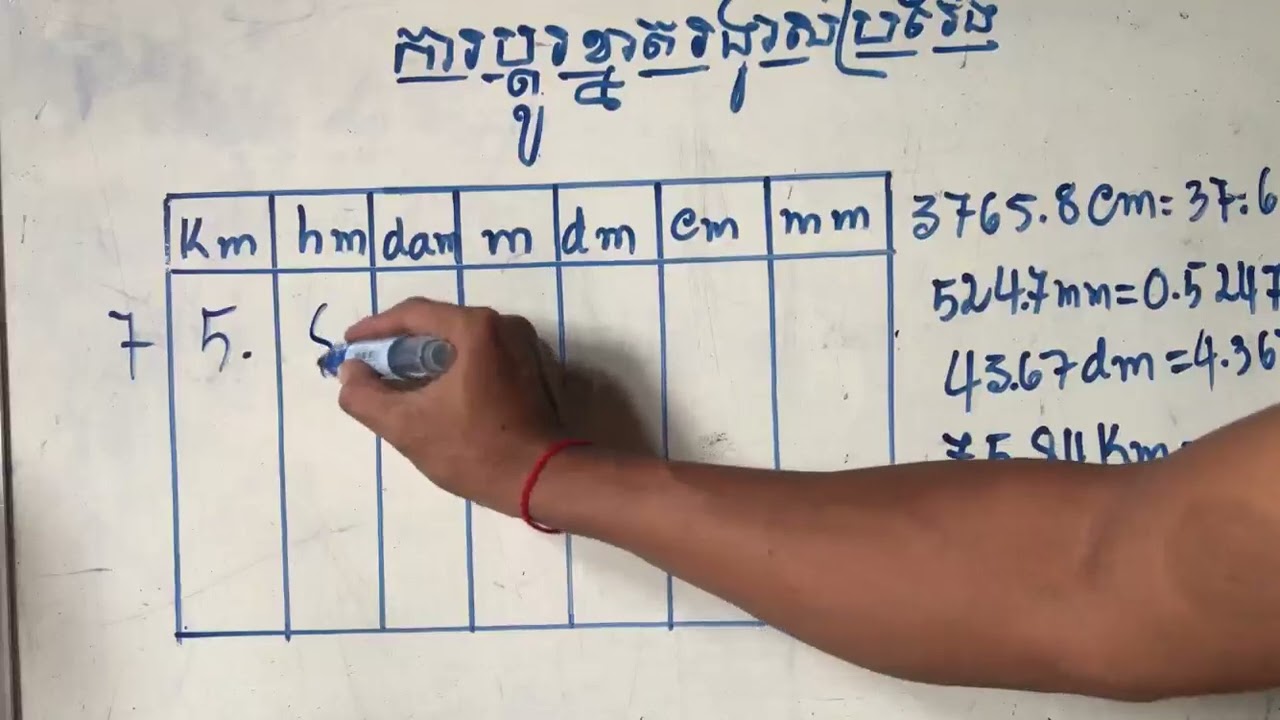 ការប្តូរខ្នាតរង្វាស់ប្រវែង
Km hm dam m dm cm mm
7 5.
3765.8 cm = 37.6
524.7 mm = 0.5247
43.67 dm = 4.367
Km